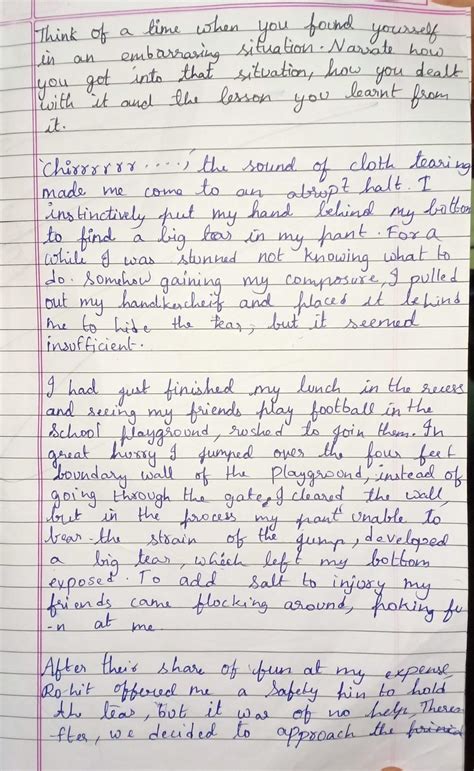 Think of a time when you found yourself
in an embarrasing situation. Narrate how
you got into that situation, how you dealt
with it and the lesson you learnt from
it.
'Chirrrrrrr ....', the sound of cloth tearing
made me come to an abrupt halt. I
instinctively put my hand behind my bottom
to find a big tear in my pant. For a
while I was stunned not knowing what to
do. Somehow gaining my composure, I pulled
out my handkercheif and placed it behind
me to hide the tear, but it seemed
insufficient.
I had just finished my lunch in the recess
and seeing my friends play football in the
school playground, rushed to join them. In
great hurry I jumped over the four feet
boundary wall of the playground, instead of
going through the gate, I cleared the wall,
but in the process my pant unable to
bear the strain of the jump, developed
a big tear, which left my bottom
exposed. To add salt to injury my
friends came flocking around, poking fu
-n at me.
After their share of fun at my expense,
Rohit offered me a safety pin to hold
the tear, but it was of no help, Therea
fter, we decided to approach the